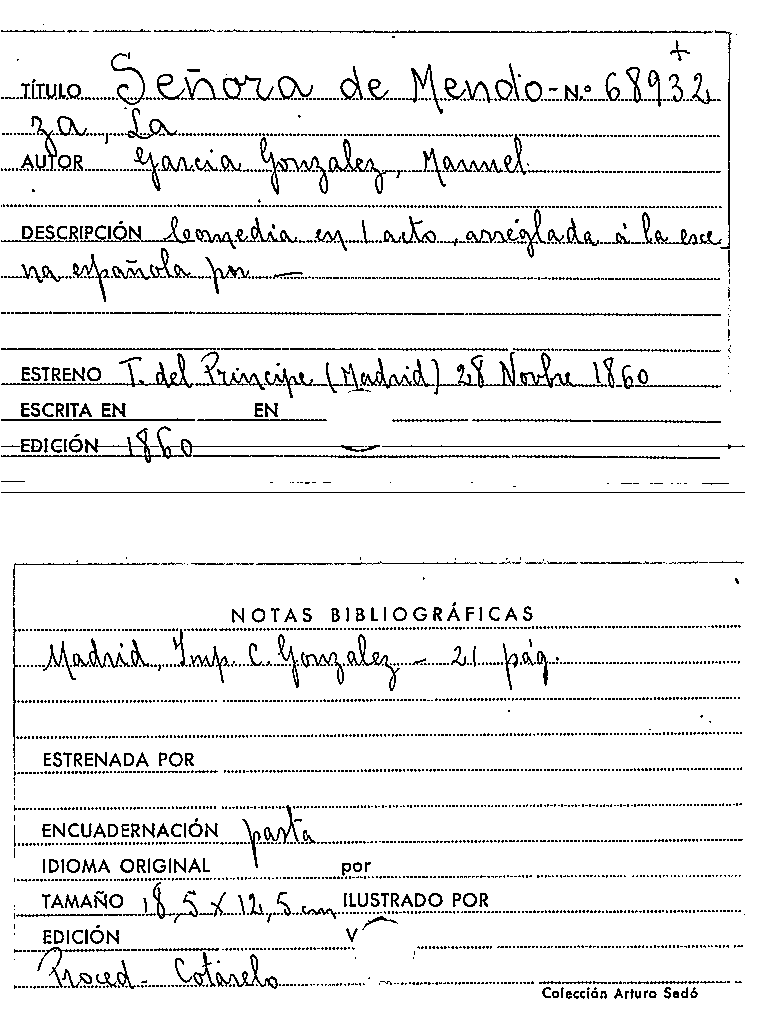 +
TÍTULO Señora de Mendo- N.º 68932
za, La
AUTOR Garcia Gonzalez, Manuel.
DESCRIPCIÓN Comedia en 1 acto, arreglada á la esce
na española por —
ESTRENO T. del Principe (Madrid) 28 Novbre 1860
ESCRITA EN EN
EDICIÓN 1860
NOTAS BIBLIOGRÁFICAS
Madrid, Imp. C. Gonzalez – 21 pág.
ESTRENADA POR
ENCUADERNACIÓN pasta
IDIOMA ORIGINAL por
TAMAÑO 18,5 x 12,5 cm ILUSTRADO POR
EDICIÓN V
Proced- Cotarelo
Colección Arturo Sedó